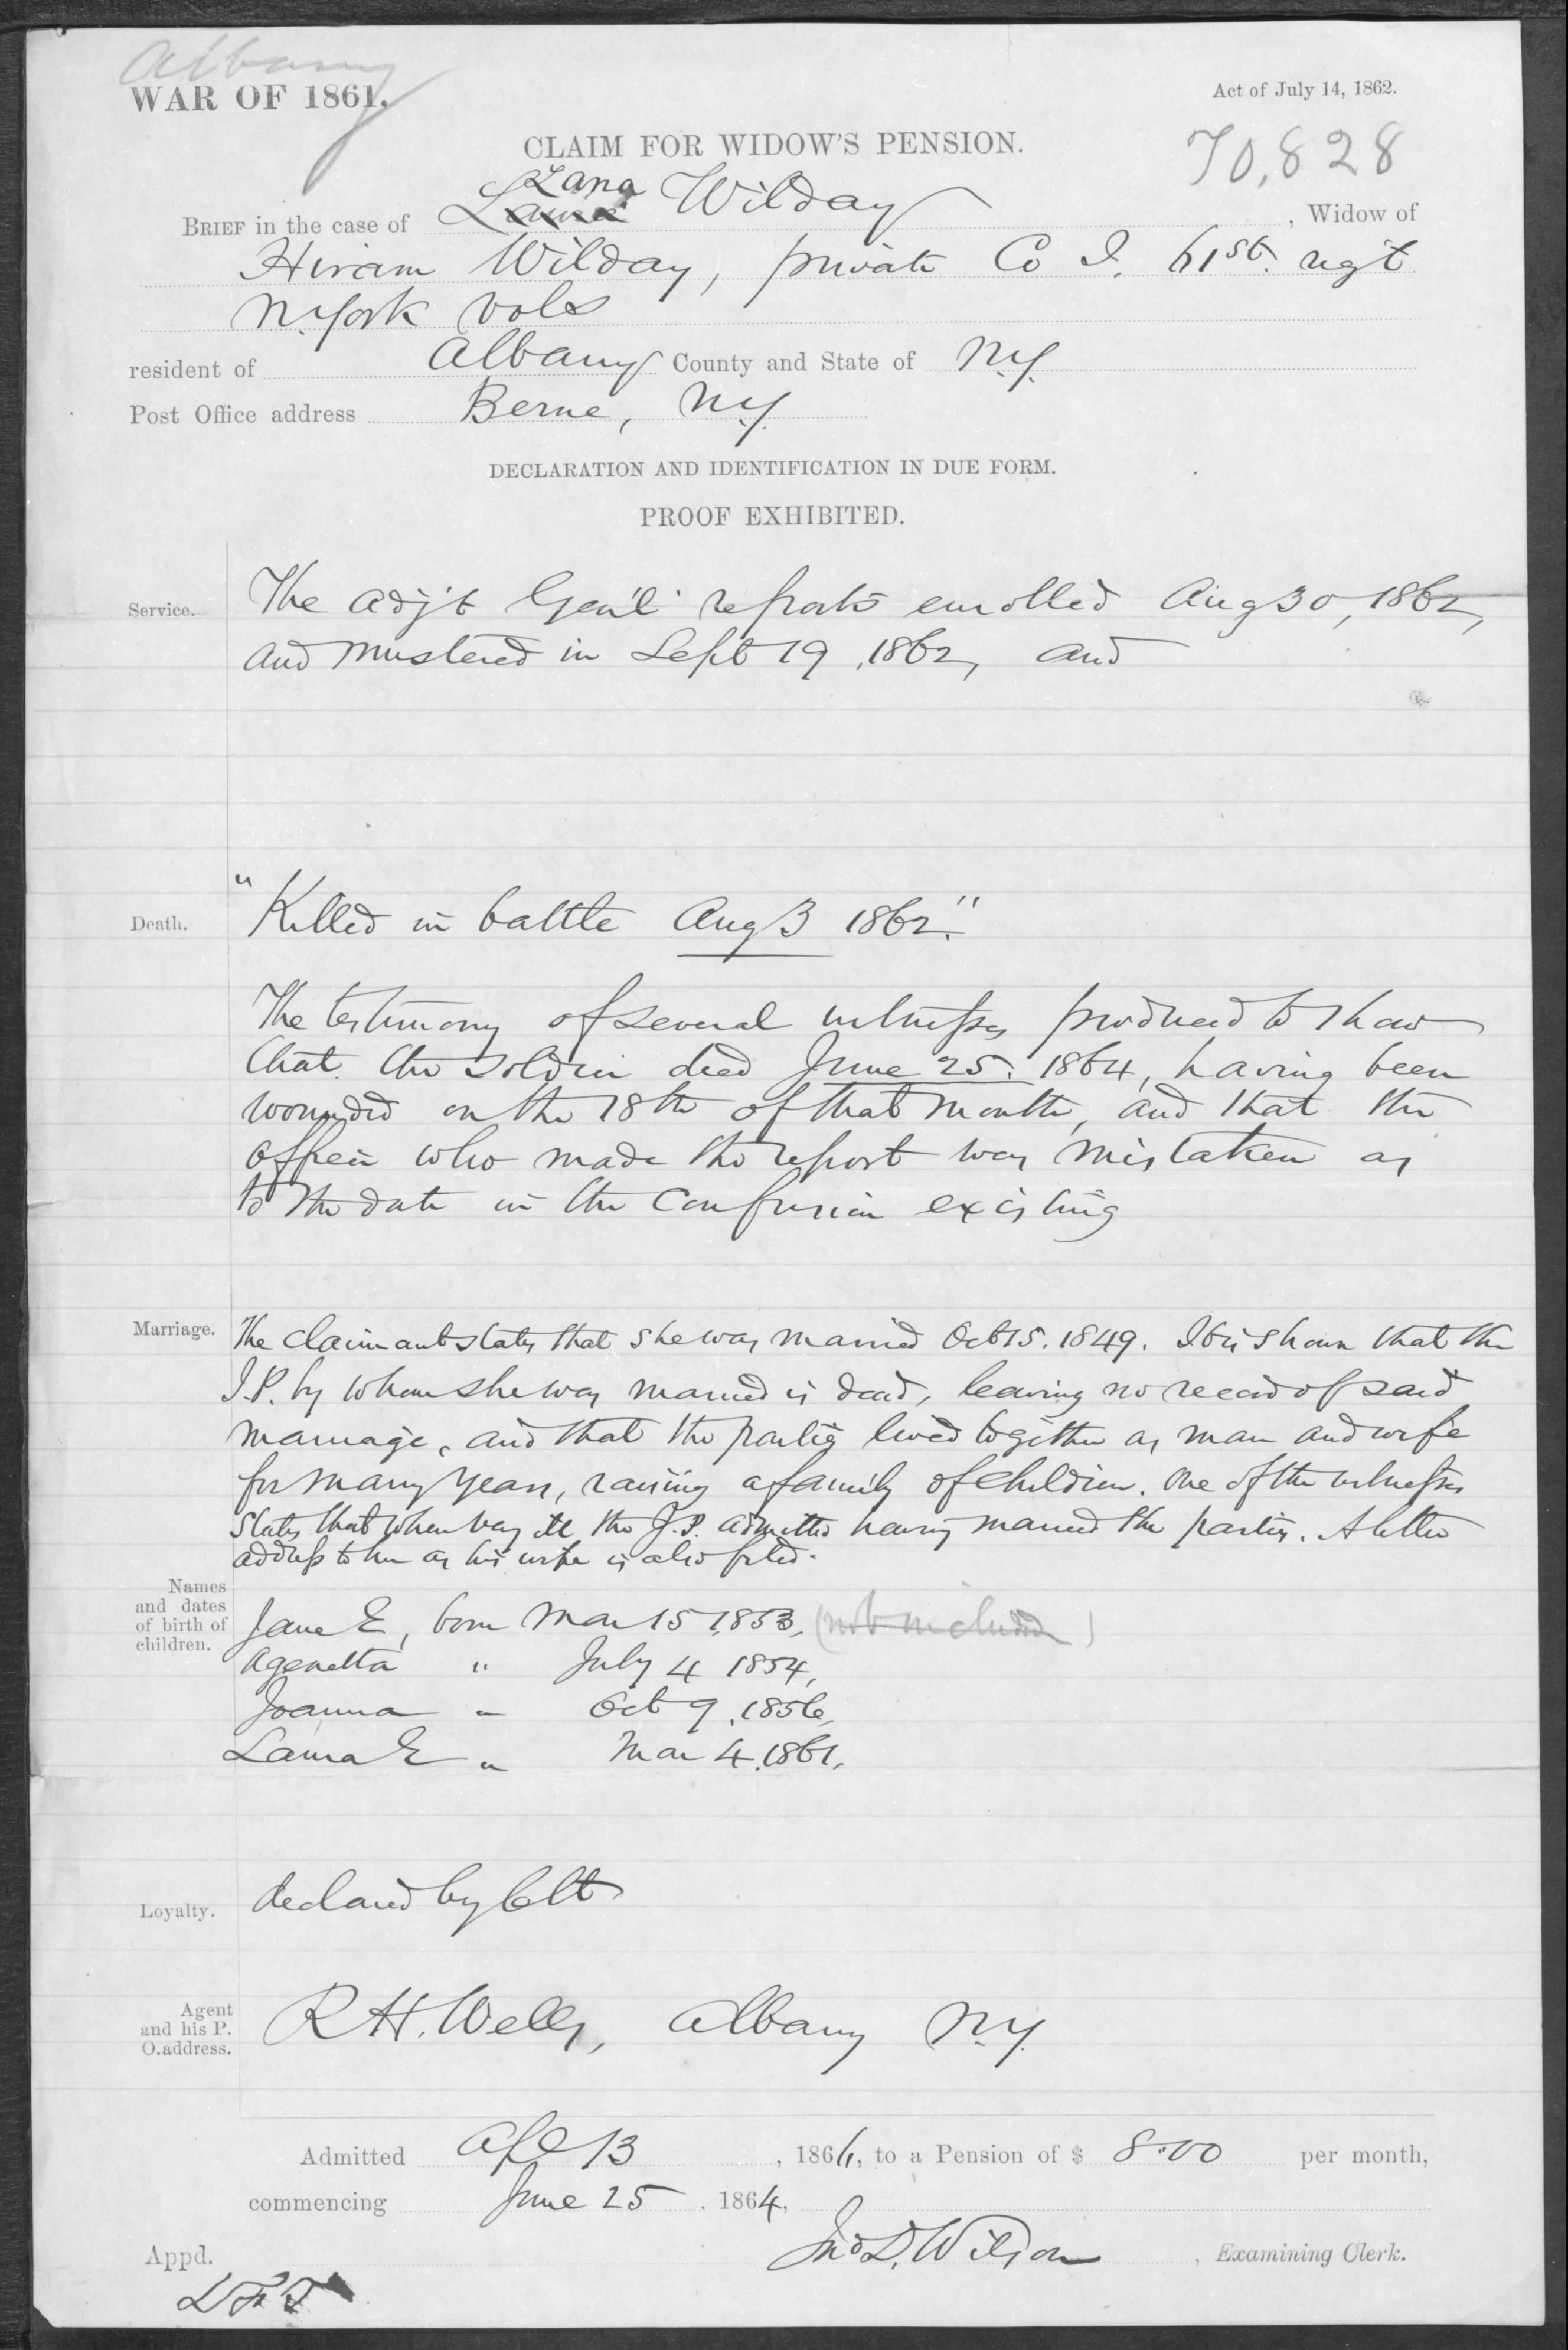 Albany
WAR OF 1861.
Act of July 14, 1862.
CLAIM FOR WIDOW'S PENSION.
70,828
Lana
BRIEF in the case of Wilday, Widow of
Hiram Wilday, private Co I. 61st. regt
N.York vols
resident of Albany County and State of N.Y.
Post Office address Berne, N.Y.
DECLARATION AND IDENTIFICATION IN DUE FORM.
PROOF EXHIBITED.
Service. The Adj't Gen'l reports enrolled Aug 30, 1862,
and mustered in Sept 19, 1862, and
Death. "Killed in battle Aug 3 1862."
The testimony of several witnesses produced to show
that the soldier died June 25. 1864, having been
wounded on the 18th of that month, and that the
officer who made the report was mistaken as
to the date in the confusion existing
Marriage. The claimant states that she was married Oct 15. 1849. It is shown that the
J.P. by whom she was married is dead, leaving no record of said
marriage, and that the parties lived together as man and wife
for many years, raising a family of children. One of the witnesses
states that when very ill the J.P. admitted having married the parties. A letter
address to her as his wife is also filed.
Names and dates of birth of children.
Jane E, born Mar 15 1853, (not included)
Agenetta " July 4 1854,
Joanna " Oct 9, 1856,
Laura E " Mar 4, 1861,
Loyalty. declared by Clt
Agent and his P. O. address. R. H. Wells, Albany N.Y.
Admitted Apl 13, 1866, to a Pension of $ 8.00 per month,
commencing June 25, 1864,
Jno D. Wilson, Examining Clerk.
Appd.